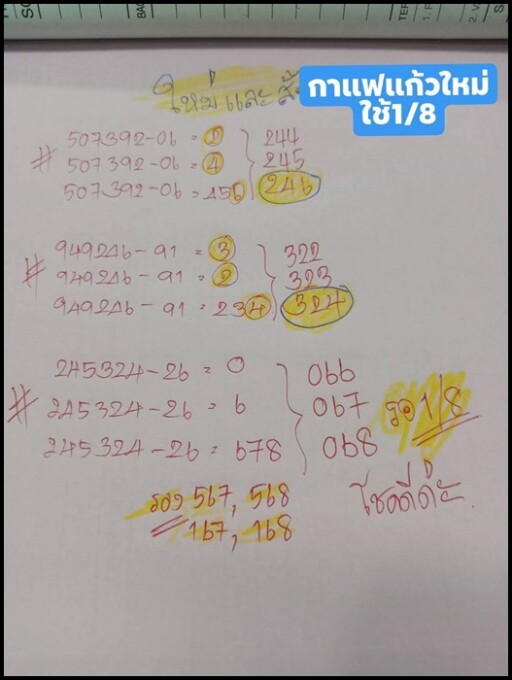 ใหม่และ
กาแฟแก้วใหม่
ใช้1/8
# 507392-06 = 2 } 244
507392-06 = 4 } 245
507392-06 = 456 } 246
# 949246-91 = 3 } 322
949246-91 = 2 } 323
949246-91 = 234 } 324
# 245324-26 = 0 } 066
245324-26 = 6 } 067 รอ 1/8
245324-26 = 678 } 068
รอง 567, 568 โชคดีค่ะ
167, 168